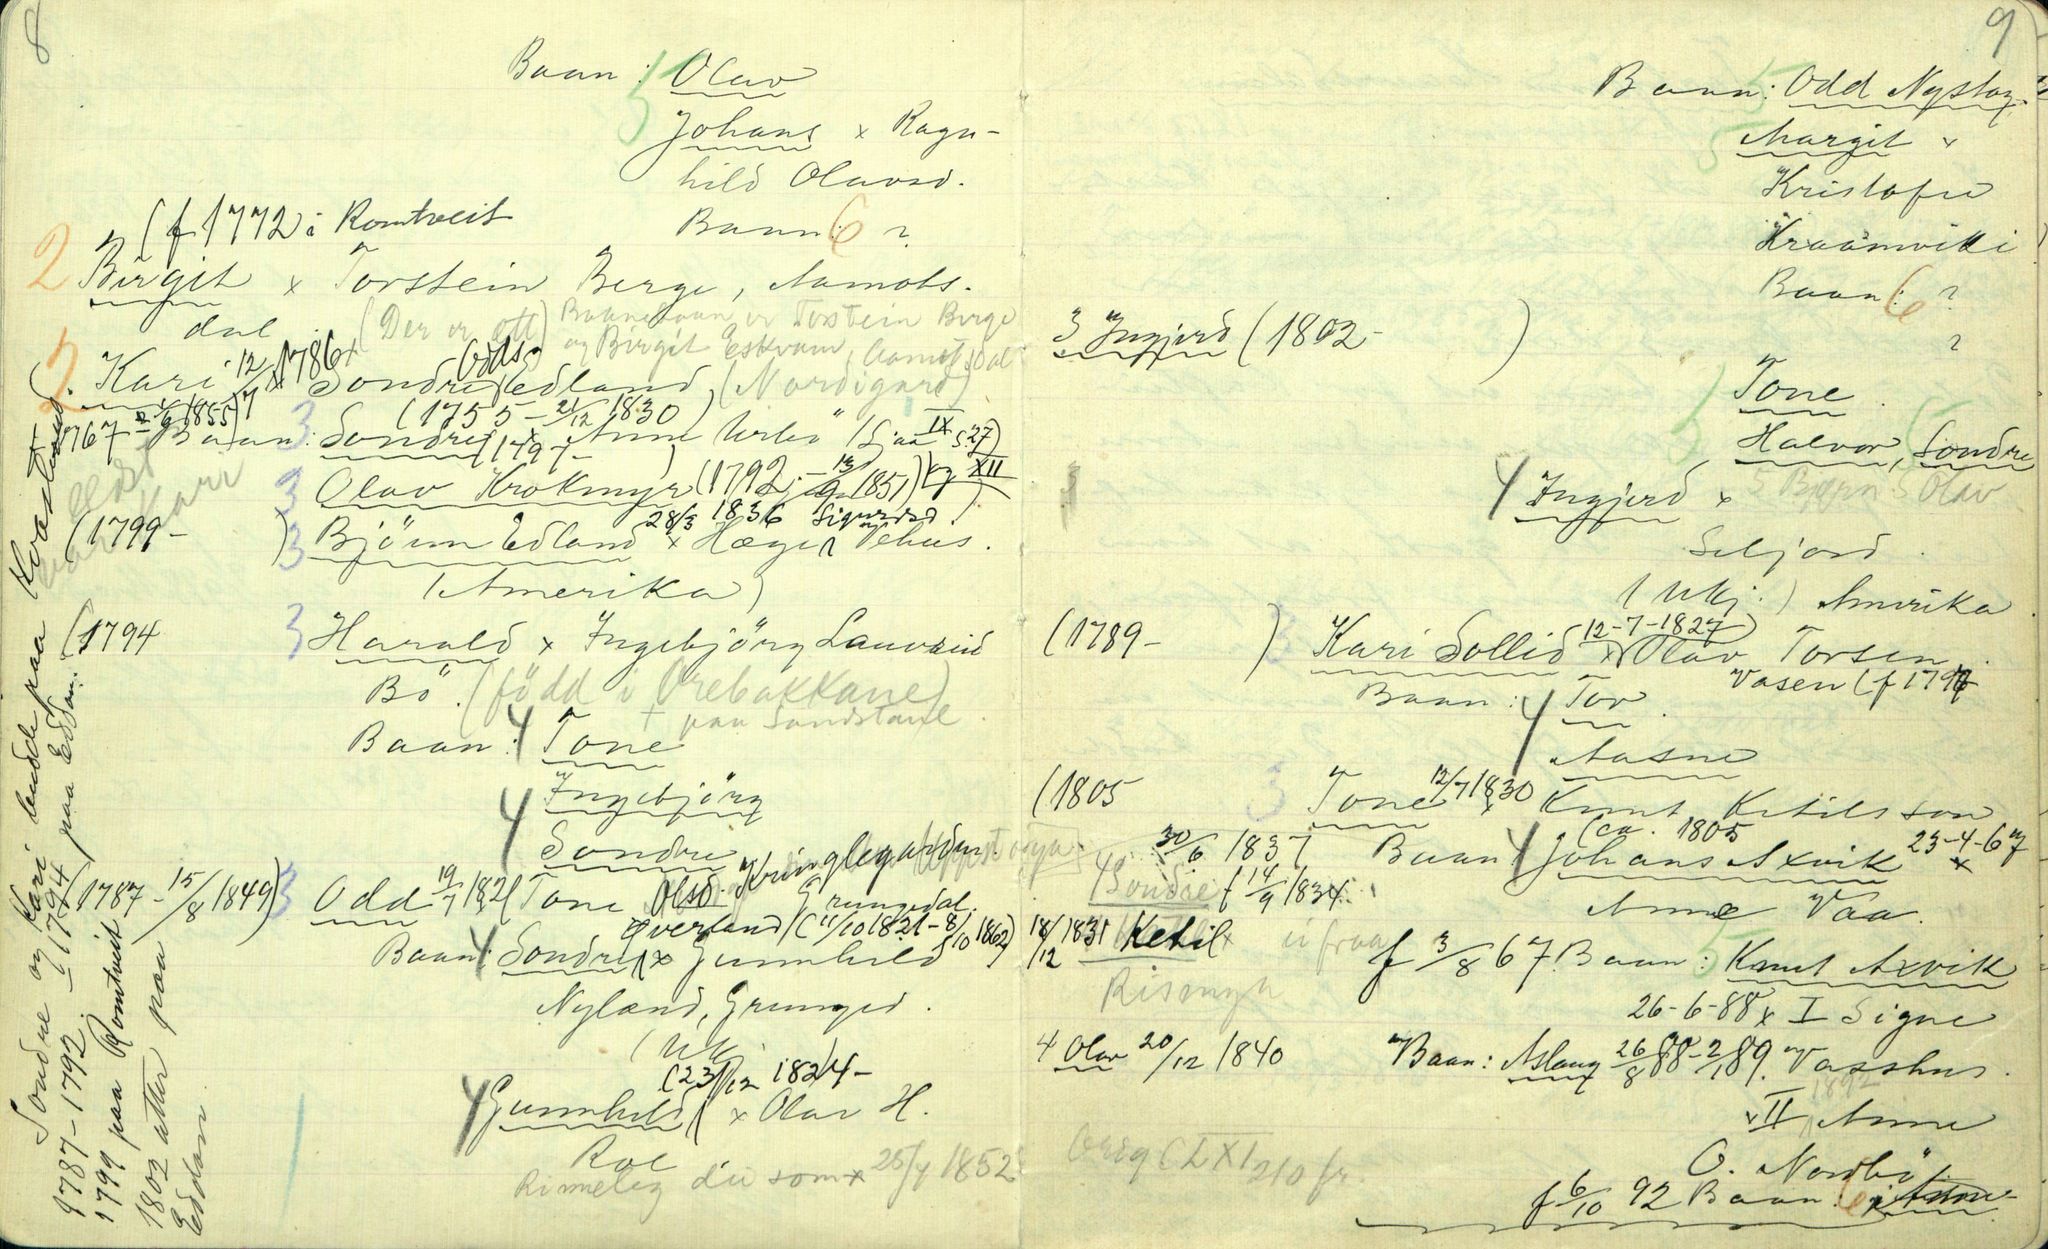 8
Baan: 5 Olav
Johans x Ragn-
hild Olavsd.
(f 1772 i Romtveit
Baan: 6 ?
2 Birgit x Torstein Berge, Aamots-
dal (Der er ått) Baanebaan er Torstein Berge
og Birgit Eskvam, Aamotsdal
2 Kari 12/7 1786 x Sondre Odds. Edland (Nordigard)
1767 - 1855) (1755 - 21/12 1830)
Baan: 3 Sondre x Anne Urbø (Sjaa IX s. 27)
(1797 - )
3 Olav Krokmyr (1792 - 13/9 1851) XII
(1799 - ) 3 Bjørn Edland 28/3 1836 x Hæge Sigurdsd Vehus.
(Amerika)
(1794 3 Harald x Ingebjörg Lauvaid
Bö. (född i Örebakkane)
† paa Sandstaul.
Baan: 4 Tone
4 Ingebjörg
4 Sondre
(1787 - 15/8 1849) 3 Odd 19/7 1821 Tone Olsd. Kringlegarden
Grungedal.
Øverland (11/10 1821 - 8/10 1862)
Baan: 4 Sondre x Gunnhild
Nyland, Grunged.
(Ukj.
(23/12 1824 -
4 Gunnhild x Olav H.
Roe
Rimeleg dei som x 25/4 1852
Sondre og Kari budde paa Kvaalund
1787 - 1792. 1794 paa Eddan.
1799 paa Romtveit
1802 atter paa
Eddan.
eldst
var Kari
9
Baan: 5 Odd Nystog
5 Margit x
Kristofer
Kraamviki
Baan: 6 ?
3 Ingjerd (1802 - )
?
5 Tone
Halvor, Sondre
4 Ingjerd x 5 Bjørn 5 Olav
Seljord.
(Ukj.) Amerika.
(1789 - ) 3 Kari Sollid 12-7-1827 x Olav Torsen
Vasen (f 1797
Baan: 4 Tor
4 Aasne
(1805 3 Tone 12/7 1830 x Knut Ketilsson
(ca. 1805
30/6 1837 Baan 4 Johans Axvik 23-4-67
x
4 Sondre f 14/9 1834
Anne Vaa.
18/12 1831 Ketil x ei fraa
Rismyr
f 3/8 67. Baan: 5 Knut Axvik
26-6-88 x I Signe
4 Olav 20/12 1840 Baan: Aslaug 26/8 88 - 2/1 89. Vasshus.
1892
x II Anne
Orig CLXI 210 fr.
O. Nordbö
f 6/10 92 Baan: 6 Anne